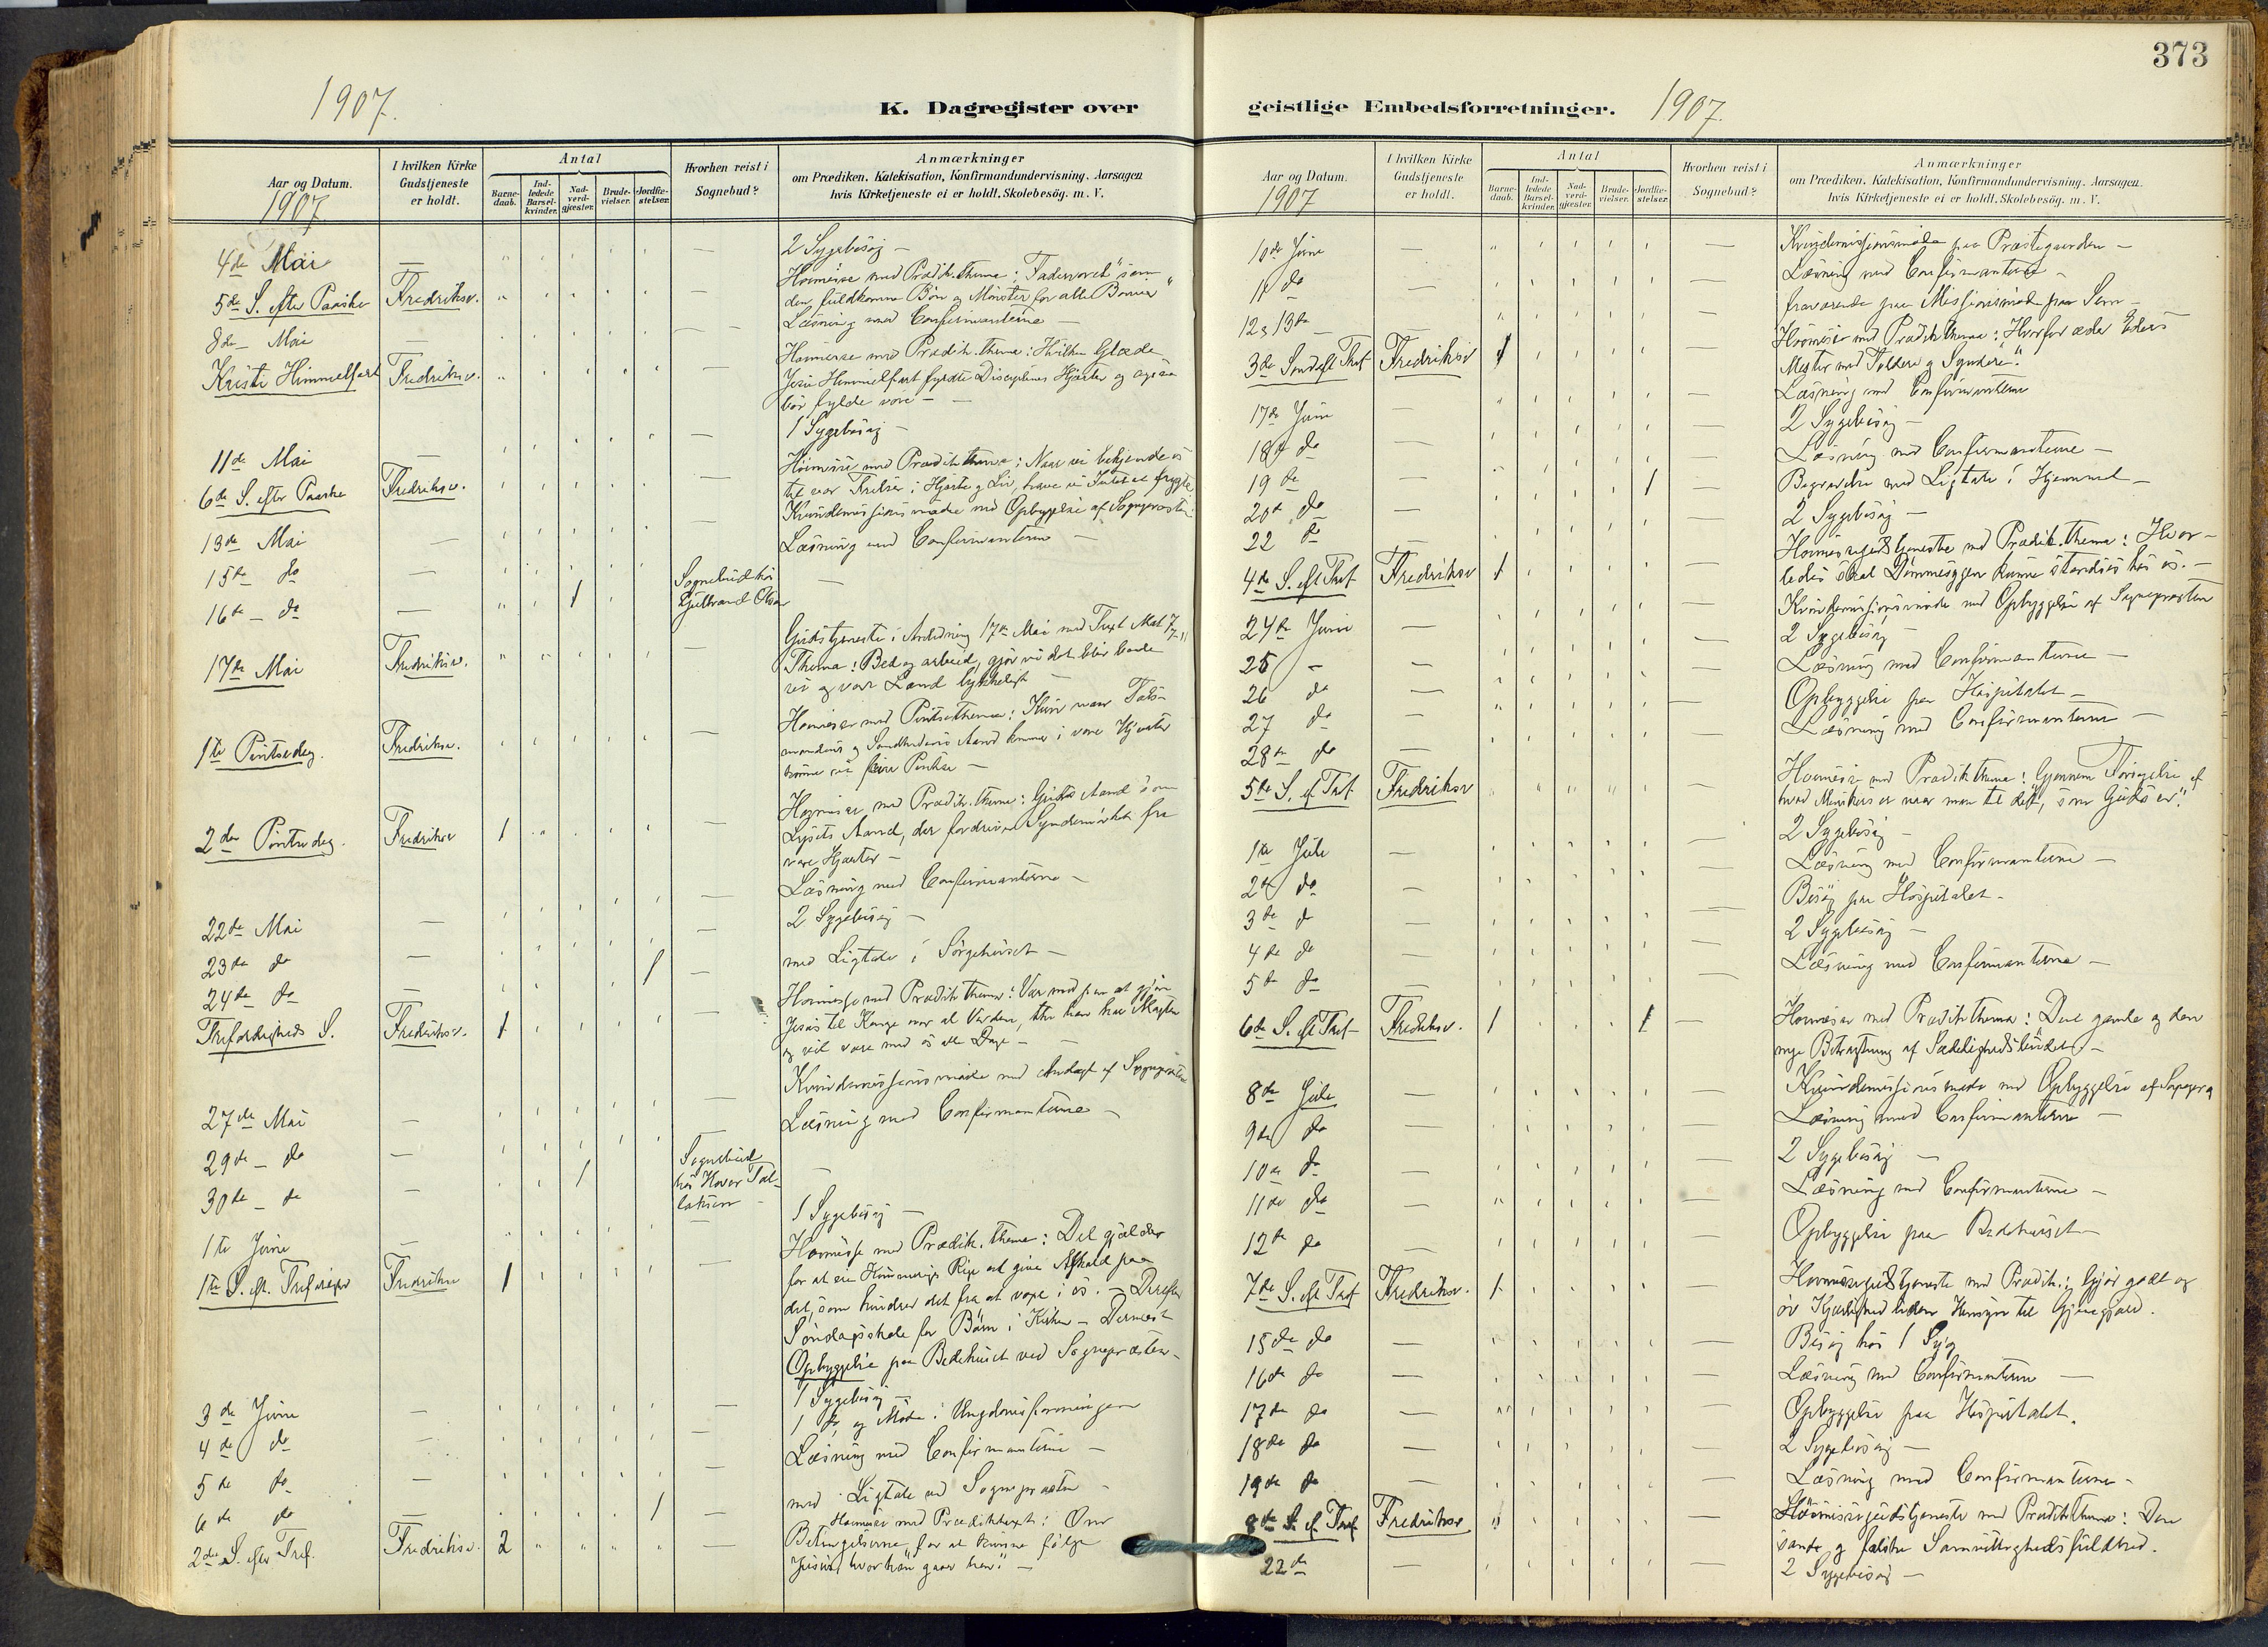 373
1907.
K. Dagregister over
Aar og Datum.
1907
I hvilken Kirke Gudstjeneste er holdt.
Antal
Barne-daab.
Ind-ledede Barsel-kvinder.
Nad-verd-gjæster.
Brude-vielser.
Jordfæ-stelser.
Hvorhen reist i Sognebud?
Anmærkninger
om Prædiken, Katekisation, Konfirmandundervisning, Aarsagen
hvis Kirketjeneste ei er holdt, Skolebesøg. m. V.
4de Mai — 2 Sygebesøg —
Høimesse med Prædik. thema: Fadervoret som
5te S. efter Paaske Fredriksv. den fuldkomne Bøn og Mønster for alle Bønner"
8de Mai — Læsning med Confirmanterne —
Høimesse med Prædik. thema: Hvilken Glæde
Kristi Himmelfart Fredriksv. Jesu Himmelfart fyldte Disciplenes Hjerter og ogsaa
bør fylde vore —
11de Mai — 1 Sygebesøg —
Høimesse med Prædik thema: Naar vi bekjende os
6te S. efter Paaske Fredriksv. til vor Frelser i Hjerte og Liv, have vi Intet at frygte
13de Mai — Kvindemissionsmøde med Opbyggelse af Sognepræsten
15de do — Læsning med Confirmanterne —
16de do — 1 Sognebud hos Gulbrand Olsen —
Gudstjeneste i Anledning 17de Mai med Text Mat 7, 7-11
17de Mai Fredriksv. Thema: Bed og arbeid, gjør vi det blir baade
vi og vor Land lykkeligt —
Høimesse med Pintsethema: Kun naar Tals-
1ste Pintsedag. Fredriksv. mandens og Sandhedens Aand kommer i vore Hjerter
kunne vi feire Pintse —
Høimesse med Prædik. thema: Guds Aand som
2den Pintsedag. Fredriksv 1 Lysets Aand, der fordriver Syndemørket fra
vore Hjerter —
22de Mai — Læsning med Confirmanterne —
23de do — 2 Sygebesøg —
24de do — 1 med Ligtale i Sørgehuset —
Høimesse med Prædik thema: Vær med paa at gjøre
Trefoldigheds S. Fredriksv. 1 Jesus til Konge over al Verden, thi han har Magten
og vil være med os alle Dage —
27de Mai — Kvindemissionsmøde med Andagt af Sognepræsten
29de do — Læsning med Confirmanterne —
30de do — 1 Sognebud hos Hovar —
1ste Juni — 1 Sygebesøg —
Høimesse med Prædik. thema: Det gjælder
1ste S. eft. Tref. Fredriksv 1 for at eie Himmerigs Rige at give Afkald paa
det, som hindrer det fra at voxe i os. — Derefter
Søndagsskole for Børn i Kirken — Dernæst
Opbyggelse paa Bedehuset ved Sognepræsten —
3de Juni — 1 Sygebesøg —
4de do — 1 do og Møde i Ungdomsforeningen
5te do — Læsning med Confirmanterne —
6te do — 1 med Ligtale ved Sognepræsten —
Høimesse med Prædiktext: Om
2den S. efter Tref. Fredriksv. 2 Betingelserne for at kunne følge
Jesus, hvor han gaar hen." —
geistlige Embedsforretninger. 1907.
Aar og Datum.
1907
I hvilken Kirke Gudstjeneste er holdt.
Antal
Barne-daab.
Ind-ledede Barsel-kvinder.
Nad-verd-gjæster.
Brude-vielser.
Jordfæ-stelser.
Hvorhen reist i Sognebud?
Anmærkninger
om Prædiken, Katekisation, Konfirmandundervisning, Aarsagen
hvis Kirketjeneste ei er holdt, Skolebesøg. m. V.
10de Juni — Kvindemissionsmøde paa Præstegaarden —
11te do — Læsning med Confirmanterne —
12, 13de — fraværende paa Missionsmøde paa Sem —
Høimesse med Prædik thema: Hvorfor æder Eders
3de Sønd eft Tref Fredriksv 1 Mester med Toldere og Syndere".
17de Juni — Læsning med Confirmanterne
18de do — 2 Sygebesøg —
19de — Læsning med Confirmanterne —
20de do — 1 Begravelse med Ligtale i Hjemmet —
22 do — 2 Sygebesøg —
Høimessegudstjeneste med Prædik. thema: Hvor-
4de S. eft Tref Fredriksv 1 ledes skal Dømmesygen kunne standses hos os. —
24de Juni — Kvindemissionsmøde med Opbyggelse af Sognepræsten
25 — — 2 Sygebesøg —
26 do — Læsning med Confirmanterne —
27 do — Opbyggelse paa Hospitalet —
28de do — Læsning med Confirmanterne —
Høimesse med Prædik thema: Gjennem Forsagelse af
5te S. ef Tref Fredriksv hvad Menneskers er naar man til det, som Guds er".
1ste Juli — 2 Sygebesøg —
2de do — Læsning med Confirmanterne —
3de do — Besøg paa Hospitalet —
4de do — 2 Sygebesøg —
5te do — Læsning med Confirmanterne —
6te S. eft Tref Fredriksv. 1 1 Høimesse med Prædik thema: Den gamle og den
nye Betragtning af Sædelighedsbudet —
8de Juli — Kvindemissionsmøde med Opbyggelse af Sognepr
9de do — Læsning med Confirmanterne —
10de do — 2 Sygebesøg —
11te do — Læsning med Confirmanterne —
12te do — Opbyggelse paa Bedehuset —
7de S. eft Tref Fredriksv. 1 Høimessegudstjeneste med Prædik.: Gjør godt og
øv Kjærlighed uden Hensyn til Gjengjæld.
15de do — Besøg hos 1 Syg
16de do — Læsning med Confirmanterne —
17de do — Opbyggelse paa Hospitalet.
18de do — 2 Sygebesøg —
19de do — Læsning med Confirmanterne —
8de S. ef Tref Fredriksv Høimessegudstjeneste med Prædik thema: Den
sande og falske Samvittighedsfuldhed.
22de — 2 Sygebesøg —